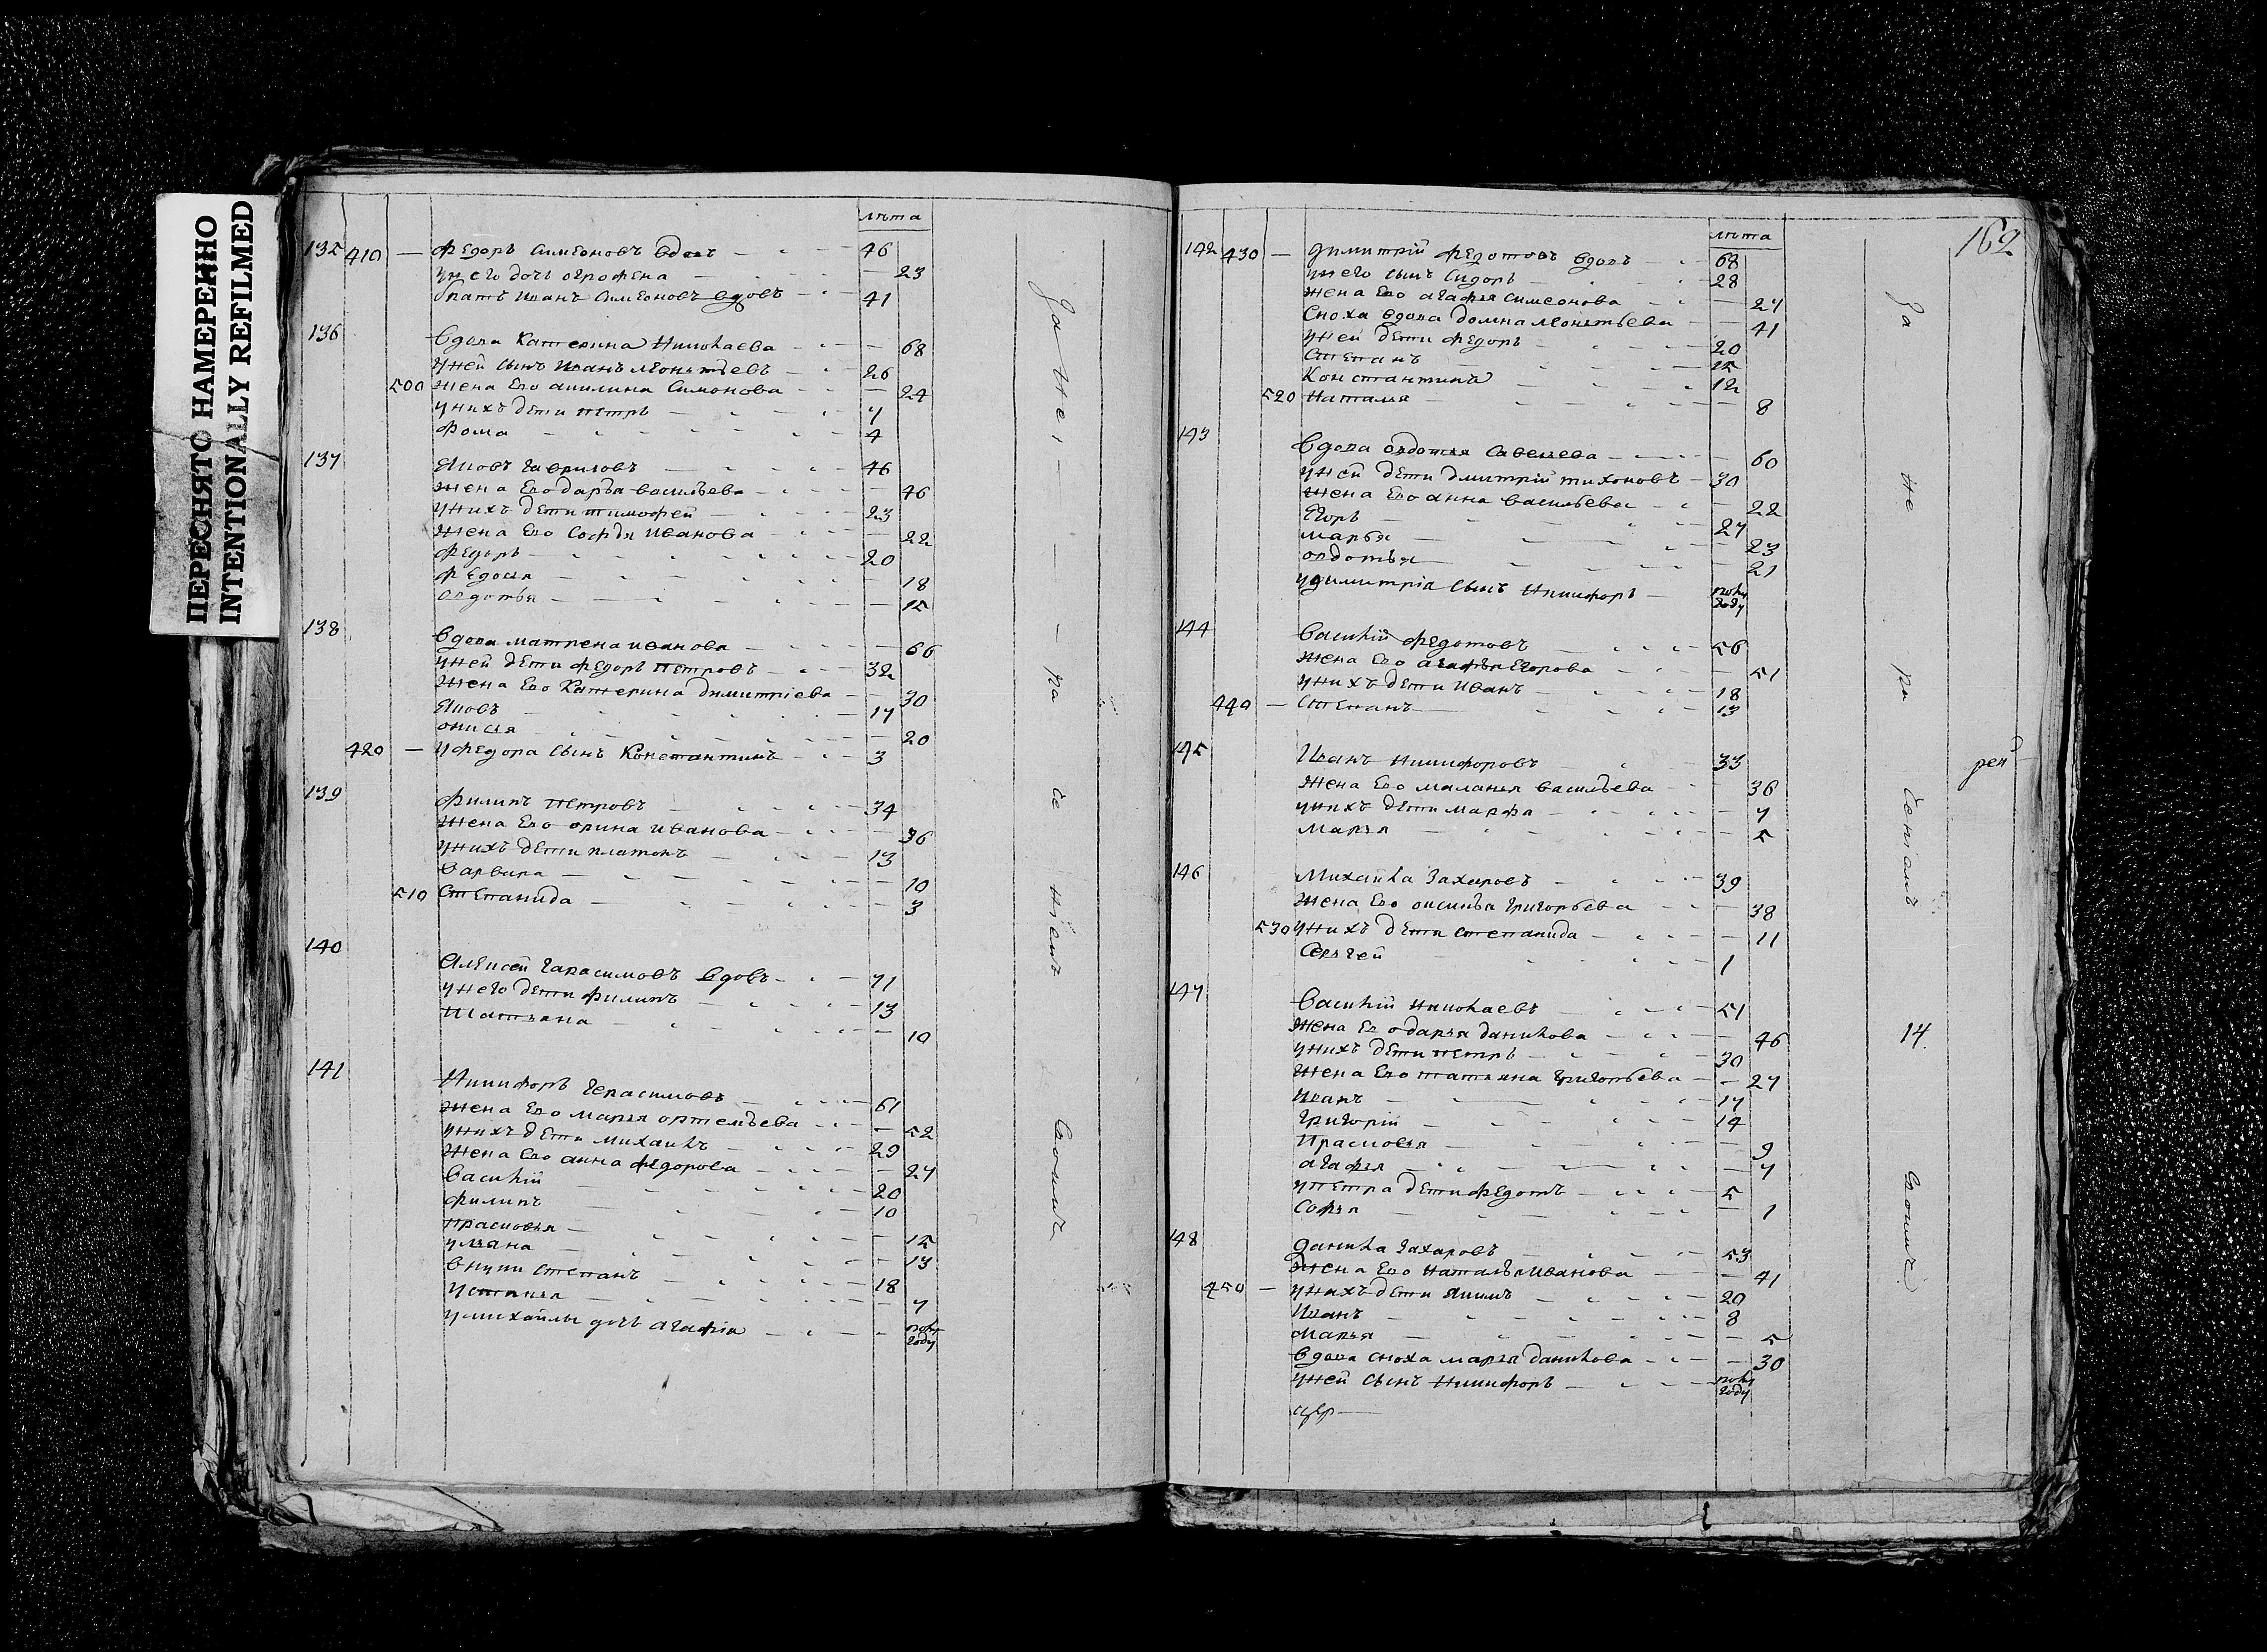 ПЕРЕСНЯТО НАМЕРЕННО
INTENTIONALLY REFILMED
лѣта
135 410 — Ѳедоръ Симеоновъ вдовъ 46
у него дочь Огрофена 23
братъ Иванъ Симеоновъ вдовъ 41
136
вдова Катерина Николаева 68
у ней сынъ Иванъ Леонтьевъ 26
500 жена Его акилина Симонова 24
у нихъ дети петръ 7
Фома 4
137
Яковъ гавриловъ 46
жена Его дарья васильева 46
у нихъ дети тимофей 23
жена Его Софья Иванова 22
Федоръ 20
Федосья 18
овдотья 15
138
вдова матрена иванова 66
у ней дети федоръ петровъ 32
жена Его Катерина димитріева 30
Яковъ 17
онисья 20
420 — у федора сынъ Константинъ 3
139
филипъ петровъ 34
жена Его орина иванова 36
у нихъ дети платонъ 13
варвара 10
510 степанида 3
140
Алексей гарасимовъ вдовъ 71
у него дети филипъ 13
татьяна 10
141
Никифоръ герасимовъ 61
жена Его марья ортемьева 52
у нихъ дети михаилъ 29
жена Его анна федорова 27
василій 20
филипъ 10
прасковья 15
ульяна 13
внуки степанъ 18
устинья 7
у михайлы дочь агафія полу году
За не ра че ніемъ своимъ
лѣта
162
142 430 — димитрій федотовъ вдовъ 68
у него сынъ Сидоръ 28
жена Его агафья симеонова 27
сноха вдова домна леонтьева 41
у ней дети федоръ 20
степанъ 15
Константинъ 12
520 Наталья 8
143
вдова овдотья Савельева 60
у ней дети дмитрій тихоновъ 30
жена Его анна васильева 22
Егоръ 27
марья 23
овдотья 21
у димитрія сынъ Никифоръ полу году
144
василій федотовъ 56
жена Его агафья Егорова 51
у нихъ дети Иванъ 18
440 — Степанъ 13
145
Иванъ Никифоровъ 33
жена Его маланья васильева 36
у нихъ дети марфа 7
марья 5
146
Михайла Захаровъ 39
жена Его оксинья григорьева 38
530 у нихъ дети степанида 11
Сергей 1
147
василій николаевъ 51
жена Его дарья данилова 46
у нихъ дети петръ 30
жена Его татьяна григорьева 27
Иванъ 17
григорій 14
прасковья 9
агафья 7
у петра дети федотъ 5
софья 1
148
данила Захаровъ 53
жена Его Наталья Иванова 41
450 — у нихъ дети Якимъ 20
Иванъ 8
марья 5
вдова сноха марья данилова 30
у ней сынъ Никифоръ полу году
За не ра ченіемъ
14.
своимъ
рей